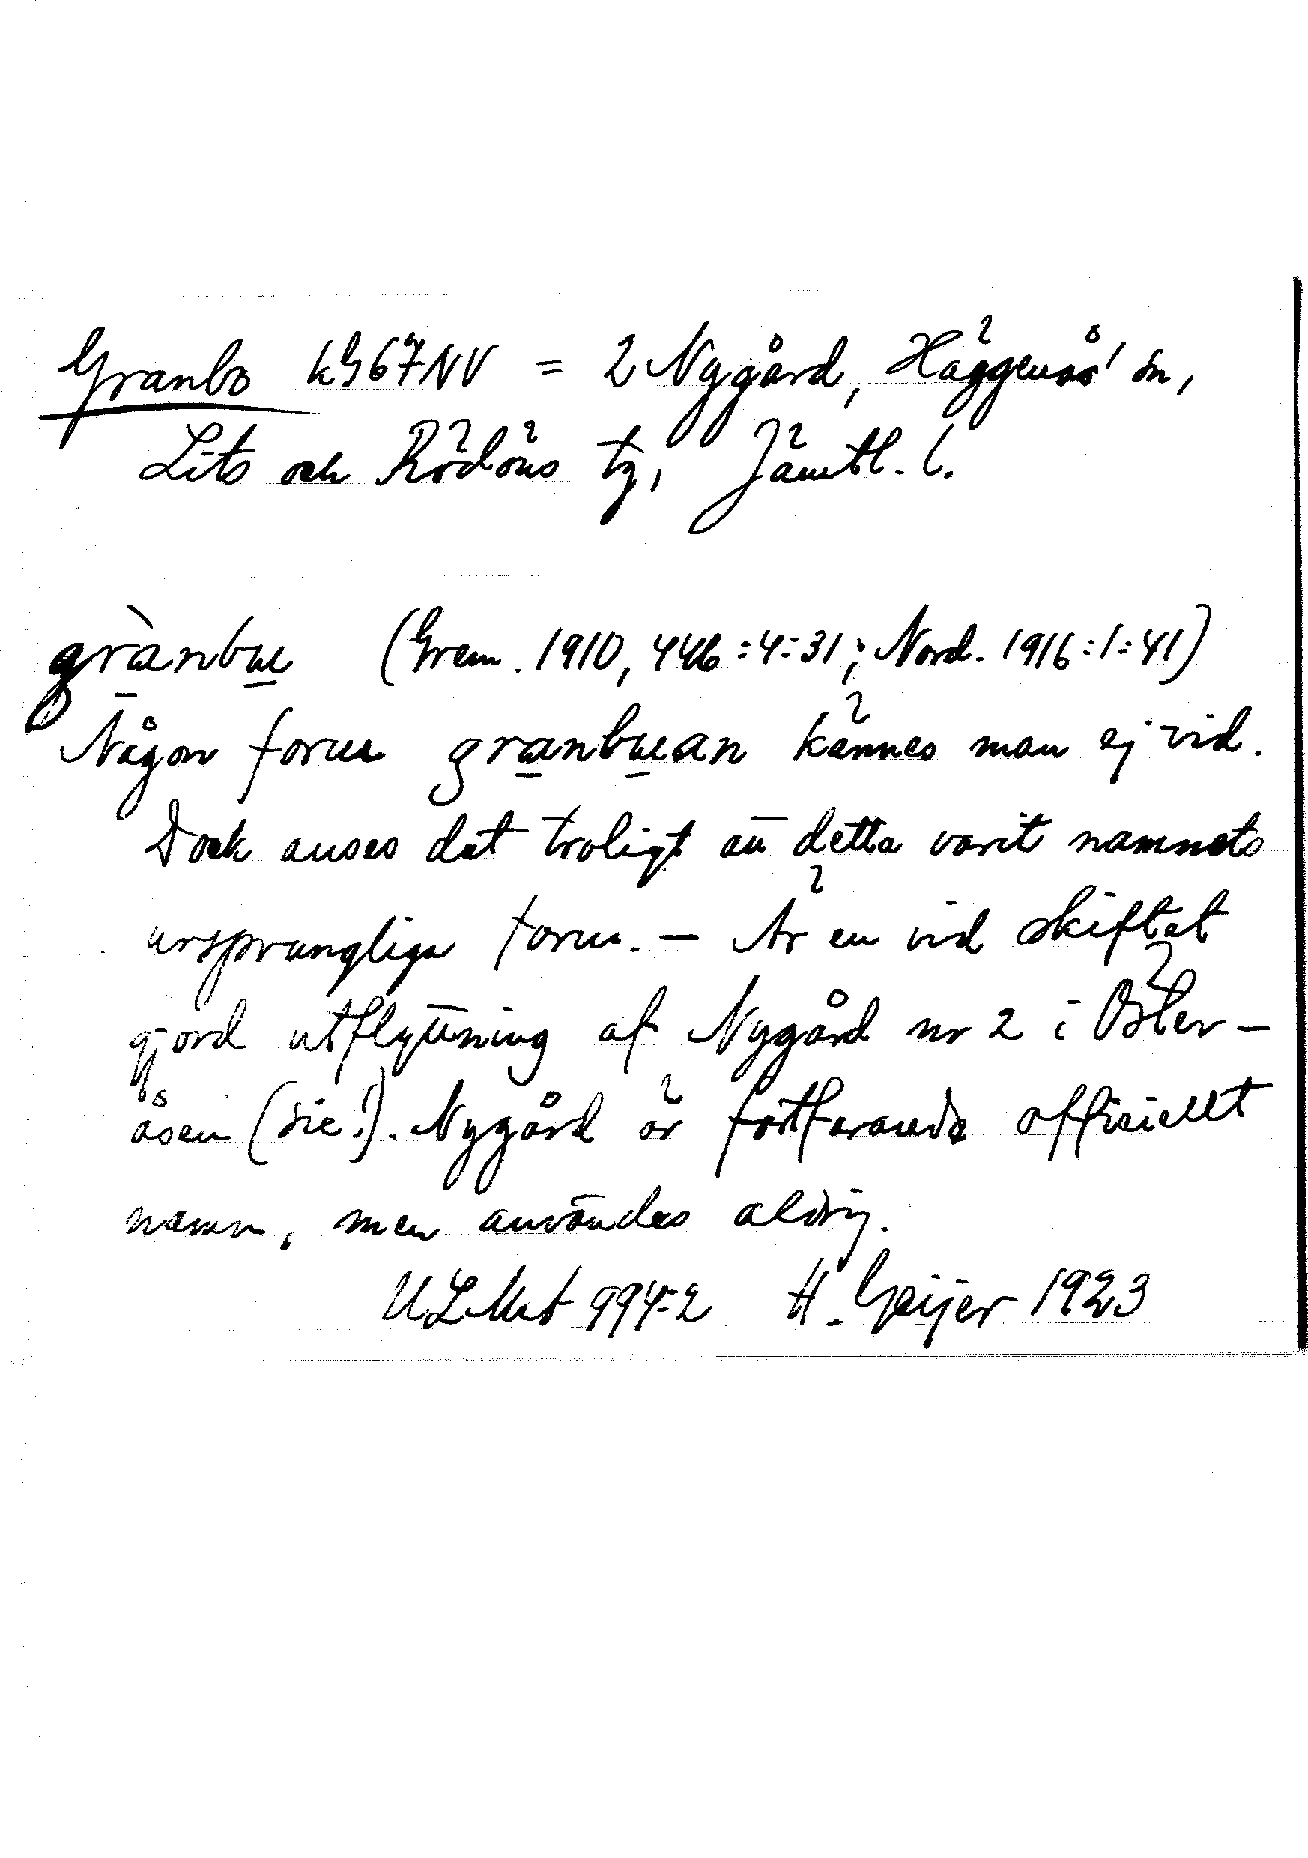 Granbo kG67NV = 2 Nygård, Häggenås' sn,
Lits och Rödöns tg, Jämtl. l.
grànbɯ (Grem. 1910, 446:4:31; Nord. 1916:1:41)
Någon form granbɯan kännes man ej vid.
Dock anses det troligt att detta varit namnets
ursprungliga form. – Är en vid skiftet
gjord utflyttning af Nygård nr 2 i Öster-
åsen (sic!). Nygård är fortfarande officiellt
namn, men användes aldrig.
ULMA 994:2 H. Geijer 1923